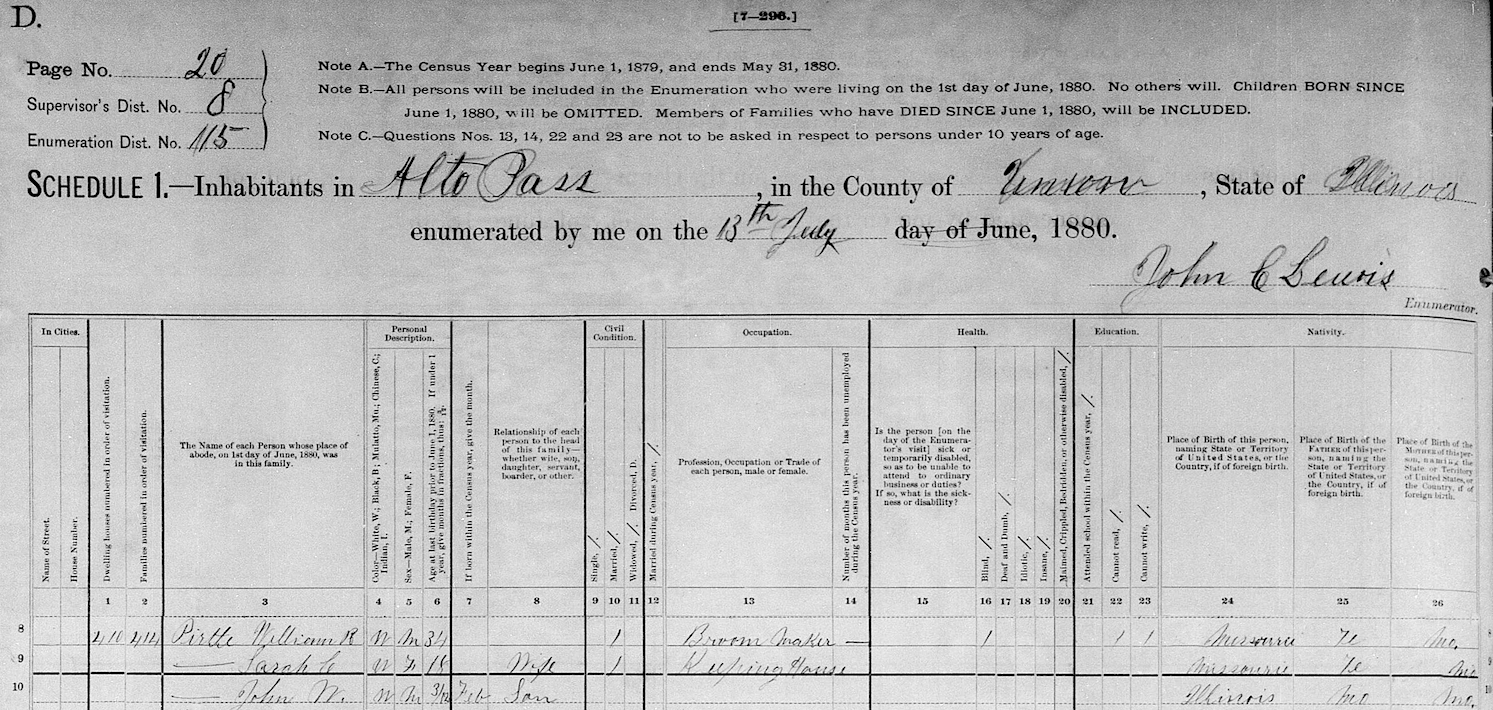 D.
[7—296.]
Page No. 20
Supervisor's Dist. No. 8
Enumeration Dist. No. 115
Note A.—The Census Year begins June 1, 1879, and ends May 31, 1880.
Note B.—All persons will be included in the Enumeration who were living on the 1st day of June, 1880. No others will. Children BORN SINCE
June 1, 1880, will be OMITTED. Members of Families who have DIED SINCE June 1, 1880, will be INCLUDED.
Note C.—Questions Nos. 13, 14, 22 and 23 are not to be asked in respect to persons under 10 years of age.
SCHEDULE 1.—Inhabitants in Alto Pass, in the County of Union, State of Illinois
enumerated by me on the 13th July day of June, 1880.
John C Lewis
Enumerator.
In Cities.
Name of Street.
House Number.
Dwelling houses numbered in order of visitation.
Families numbered in order of visitation.
The Name of each Person whose place of
abode, on 1st day of June, 1880, was
in this family.
Personal
Description.
Color—White, W.; Black, B; Mulatto, Mu.; Chinese, C.;
Indian, I.
Sex—Male, M.; Female, F.
Age at last birthday prior to June 1, 1880. If under 1
year, give months in fractions, thus: 3/12.
If born within the Census year, give the month.
Relationship of each
person to the head
of this family—
whether wife, son,
daughter, servant,
boarder, or other.
Civil
Condition.
Single, /.
Married, /.
Widowed, /. Divorced, D.
Married during Census year, /.
Occupation.
Profession, Occupation or Trade of
each person, male or female.
Number of months this person has been unemployed
during the Census year.
Health.
Is the person [on the
day of the Enumera-
tor's visit] sick or
temporarily disabled,
so as to be unable to
attend to ordinary
business or duties?
If so, what is the sick-
ness or disability?
Blind, /.
Deaf and Dumb, /.
Idiotic, /.
Insane, /.
Maimed, Crippled, Bedridden, or otherwise disabled, /.
Education.
Attended school within the Census year, /.
Cannot read, /.
Cannot write, /.
Nativity.
Place of Birth of this person,
naming State or Territory
of United States, or the
Country, if of foreign birth.
Place of Birth of the
FATHER of this per-
son, naming the
State or Territory
of United States, or
the Country, if of
foreign birth.
Place of Birth of the
MOTHER of this per-
son, naming the
State or Territory
of United States, or
the Country, if of
foreign birth.
1 2 3 4 5 6 7 8 9 10 11 12 13 14 15 16 17 18 19 20 21 22 23 24 25 26
8 410 414 Pirtle William R W M 34 / Broom Maker — / / / Missourie Te Mo. 8
9 — Sarah C W F 18 Wife / Keeping House Missourie Te Mo 9
10 — John W. W M 3/12 Feb Son Illinois Mo Mo. 10